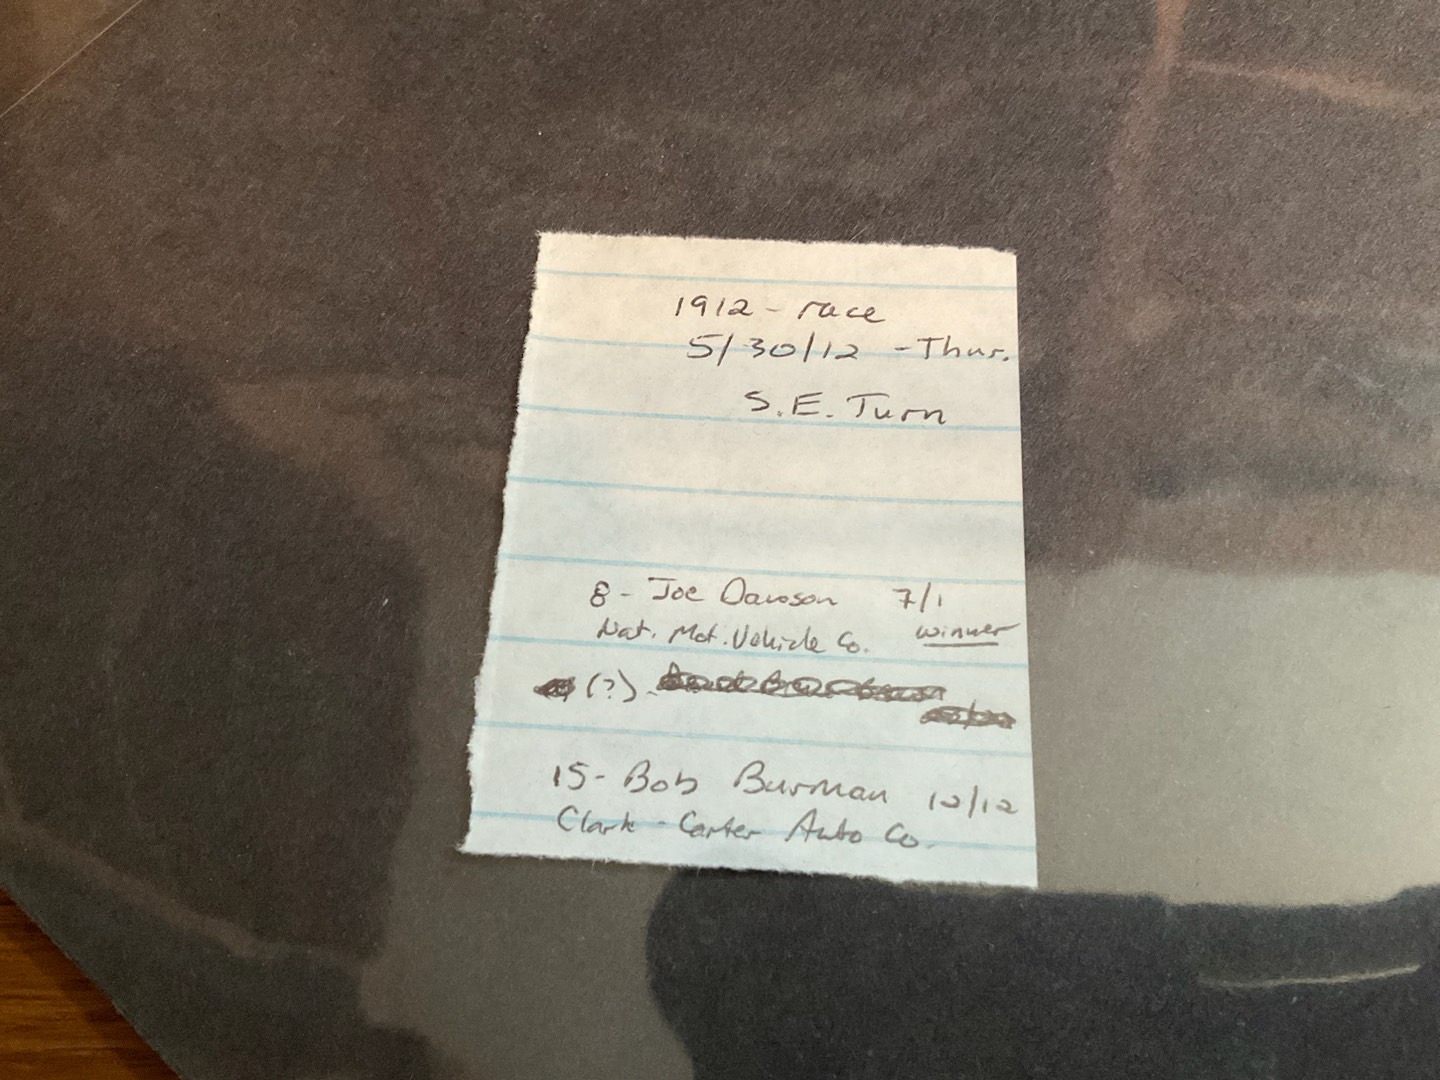 1912 - race
5/30/12 - Thur.
S.E. Turn
8 - Joe Dawson 7/1
Nat. Mot. Vehicle Co. winner
(?) -
15 - Bob Burman 12/12
Clark - Carter Auto Co.